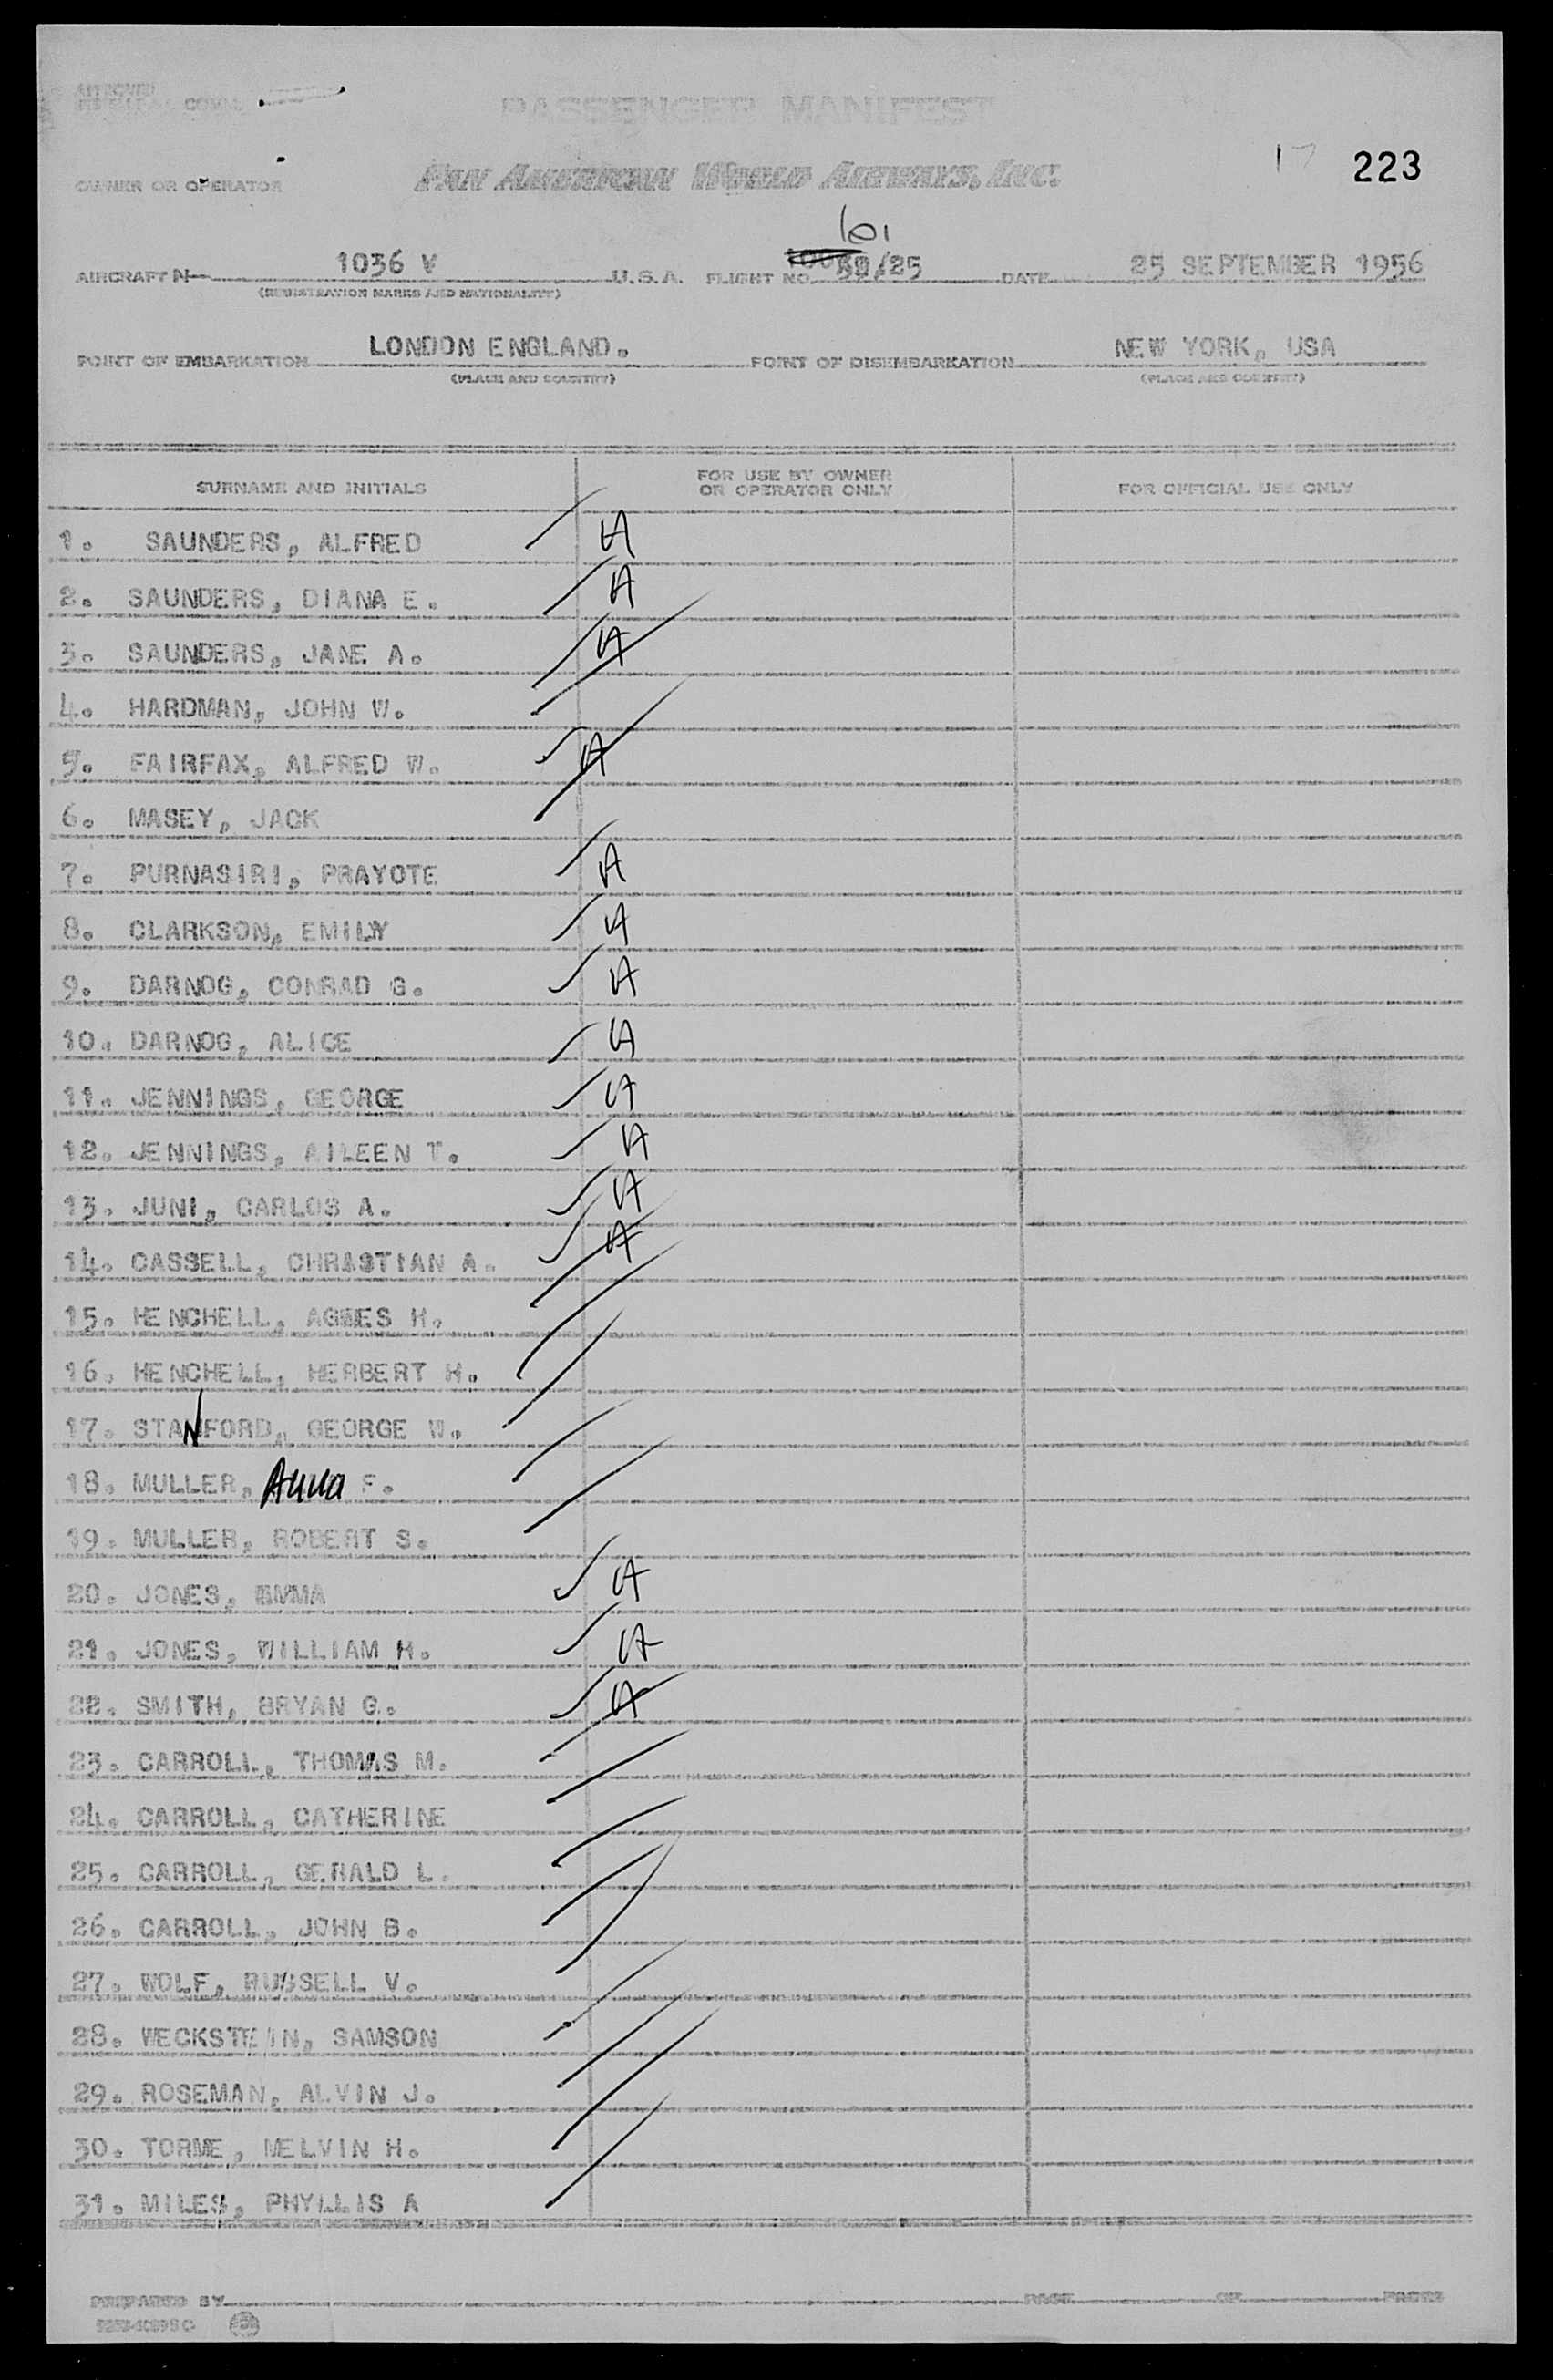 PASSENGER MANIFEST
17 223
OWNER OR OPERATOR PAN AMERICAN WORLD AIRWAYS, INC.
101
AIRCRAFT N 1036 V U.S.A. FLIGHT NO. 59/25 DATE 25 SEPTEMBER 1956
(REGISTRATION MARKS AND NATIONALITY)
POINT OF EMBARKATION LONDON ENGLAND. POINT OF DISEMBARKATION NEW YORK, USA
(PLACE AND COUNTRY) (PLACE AND COUNTRY)
SURNAME AND INITIALS FOR USE BY OWNER OR OPERATOR ONLY FOR OFFICIAL USE ONLY
1. SAUNDERS, ALFRED A
2. SAUNDERS, DIANA E. A
3. SAUNDERS, JANE A. A
4. HARDMAN, JOHN W.
5. FAIRFAX, ALFRED W. A
6. MASEY, JACK
7. PURNASIRI, PRAYOTE A
8. CLARKSON, EMILY A
9. DARNOG, CONRAD G. A
10. DARNOG, ALICE A
11. JENNINGS, GEORGE A
12. JENNINGS, AILEEN T. A
13. JUNI, CARLOS A. A
14. CASSELL, CHRISTIAN A. A
15. HENCHELL, AGNES H.
16. HENCHELL, HERBERT H.
17. STANFORD, GEORGE W.
18. MULLER, Anna F.
19. MULLER, ROBERT S.
20. JONES, EMMA A
21. JONES, WILLIAM H. A
22. SMITH, BRYAN G. A
23. CARROLL, THOMAS M.
24. CARROLL, CATHERINE
25. CARROLL, GERALD L.
26. CARROLL, JOHN B.
27. WOLF, RUSSELL V.
28. WECKSTEIN, SAMSON
29. ROSEMAN, ALVIN J.
30. TORME, MELVIN H.
31. MILES, PHYLLIS A
PREPARED BY PAGE OF PAGES